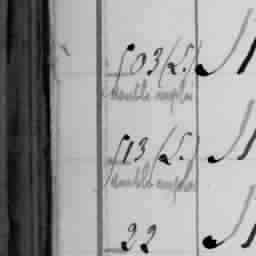 503 (S.)
double emploi
513 (S.)
double emploi
22